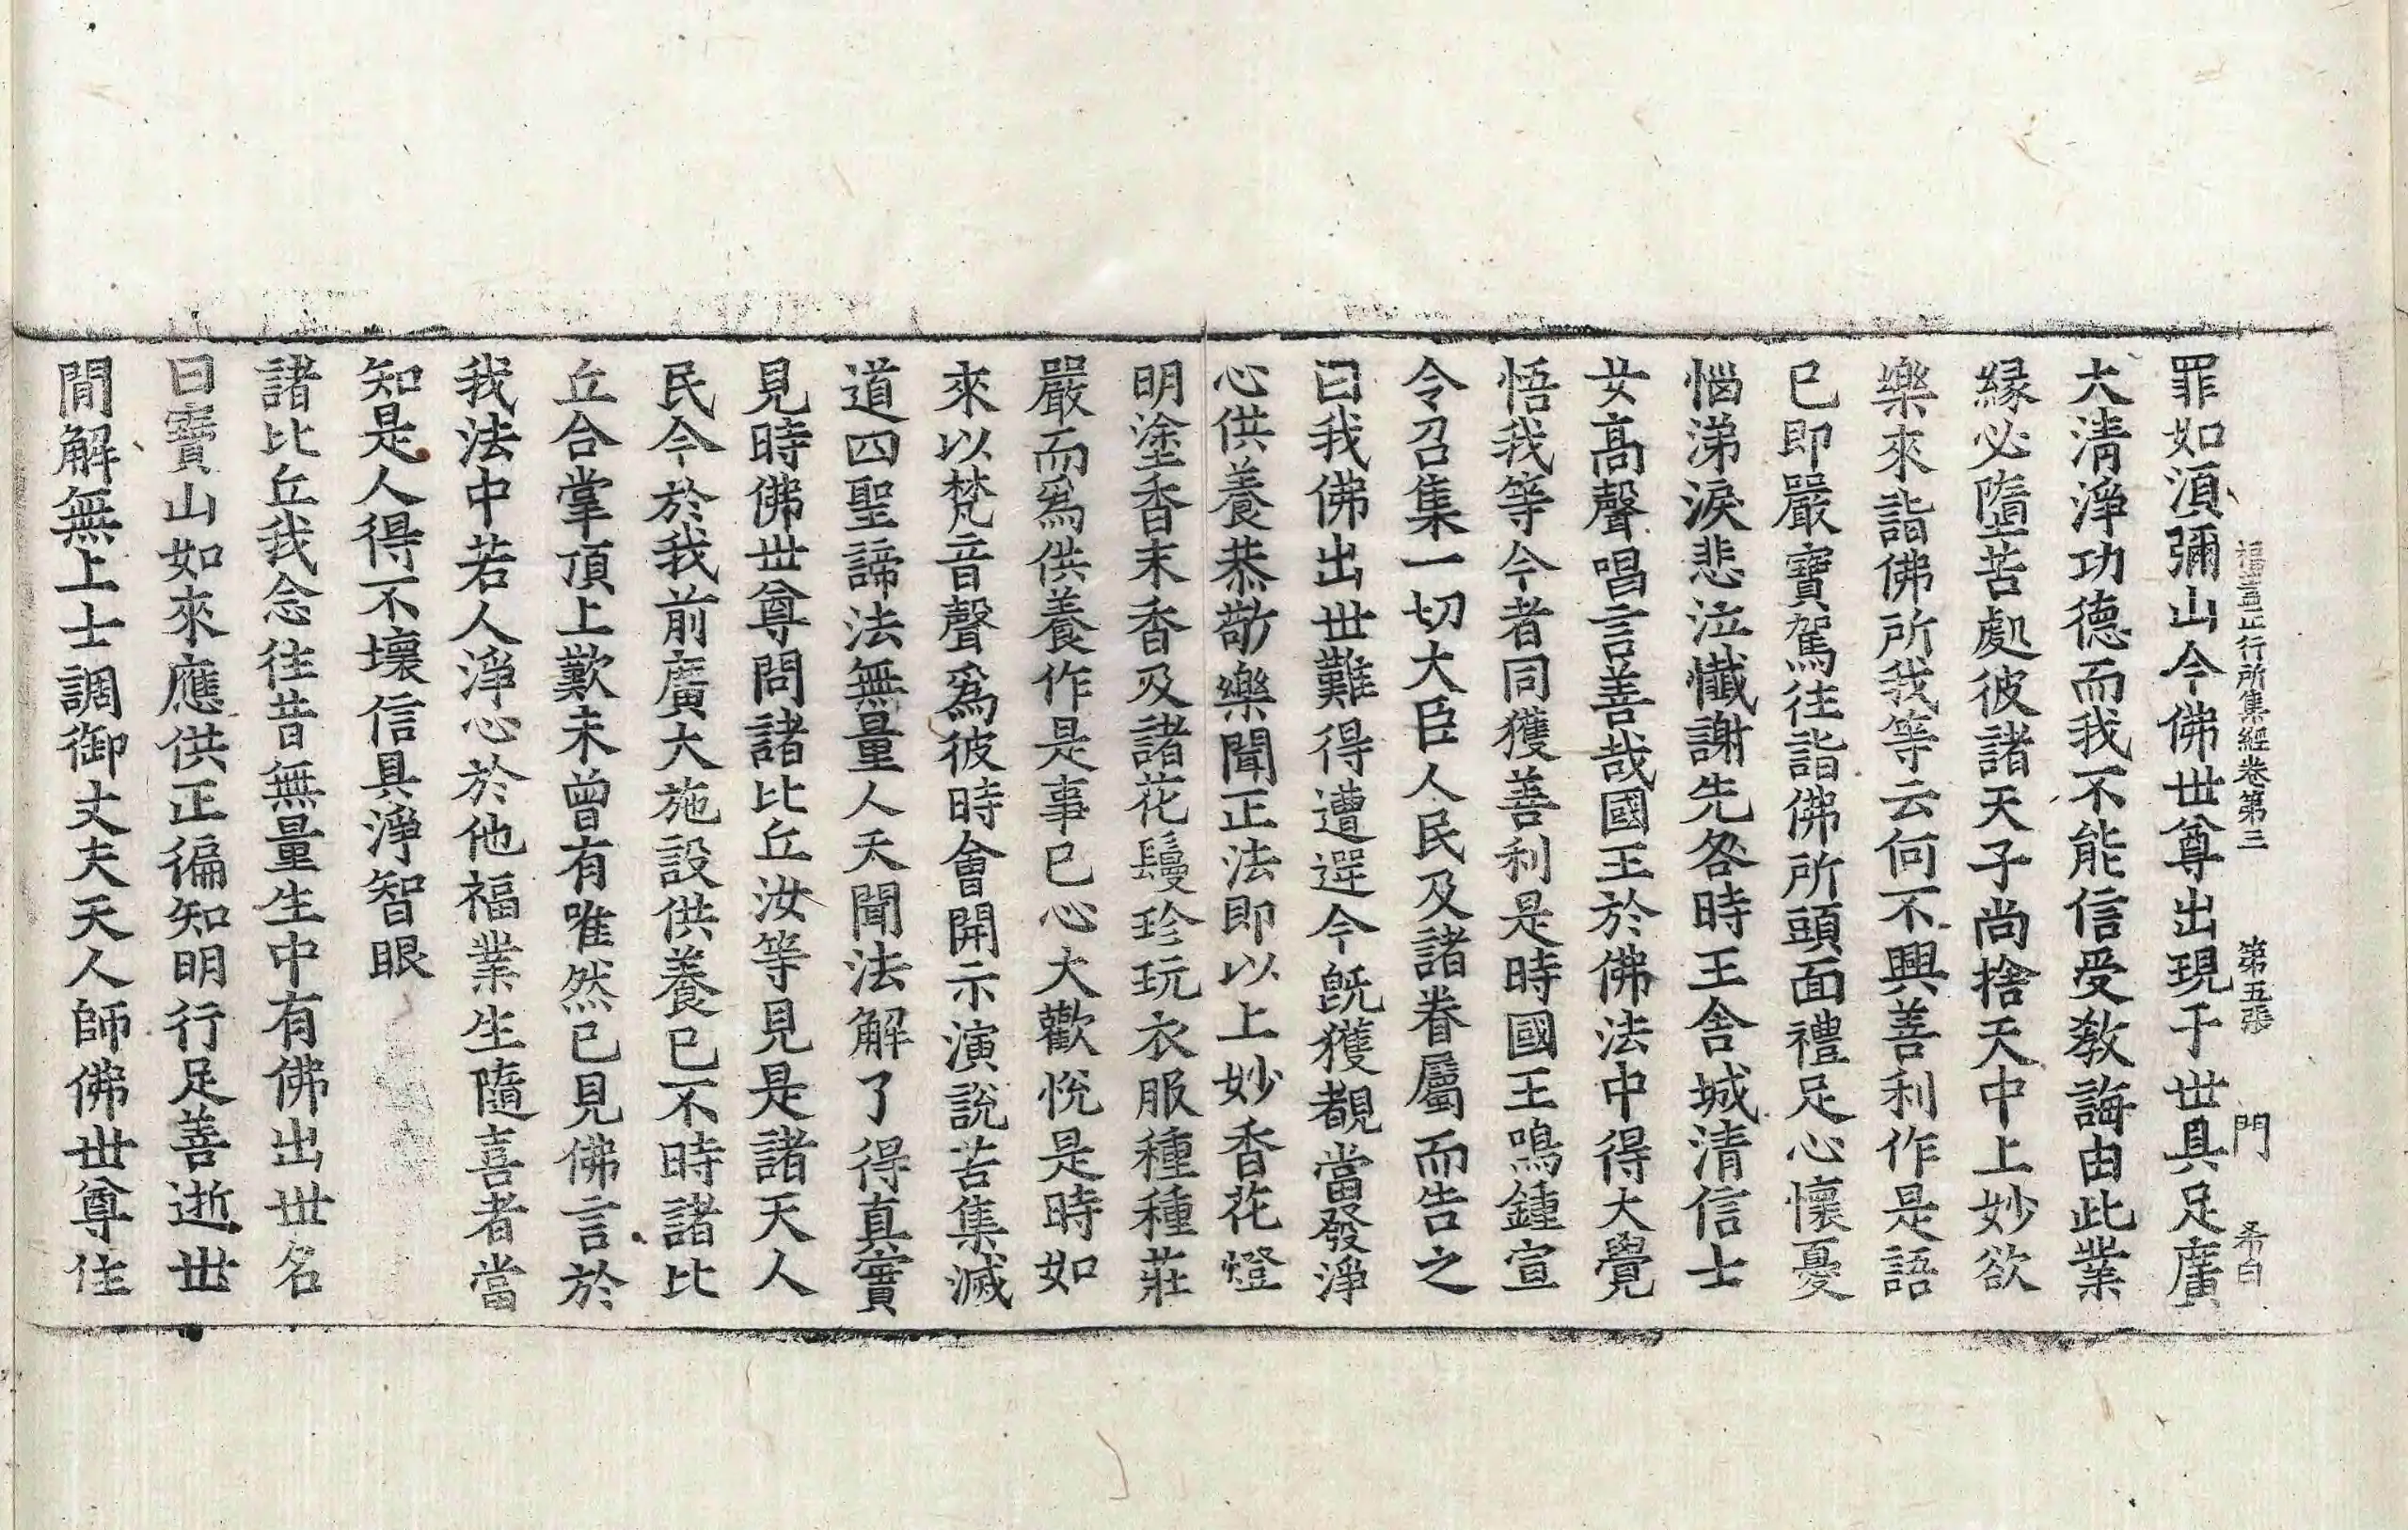 福蓋正行所集經卷第三 第五張 門 希白
罪如湏彌山今佛世尊出現于世具足廣
大清淨功德而我不能信受教誨由此業
緣必墮苦處彼諸天子尚捨天中上妙欲
樂來詣佛所我等云何不興善利作是語
已即嚴寶駕往詣佛所頭面禮足心懷憂
惱涕淚悲泣懺謝先咎時王舍城清信士
女高聲唱言善哉國王於佛法中得大覺
悟我等今者同獲善利是時國王鳴鍾宣
令召集一切大臣人民及諸眷屬而告之
曰我佛出世難得遭遇今旣獲覩當發淨
心供養恭敬樂聞正法即以上妙香花燈
明塗香末香及諸花鬘珍玩衣服種種莊
嚴而爲供養作是事已心大歡悅是時如
來以梵音聲爲彼時會開示演說苦集滅
道四聖諦法無量人天聞法解了得真實
見時佛世尊問諸比丘汝等見是諸天人
民今於我前廣大施設供養已不時諸比
丘合掌頂上歎未曾有唯然已見佛言於
我法中若人淨心於他福業生隨喜者當
知是人得不壞信具淨智眼
諸比丘我念往昔無量生中有佛出世名
曰寶山如來應供正徧知明行足善逝世
閒解無上士調御丈夫天人師佛世尊住